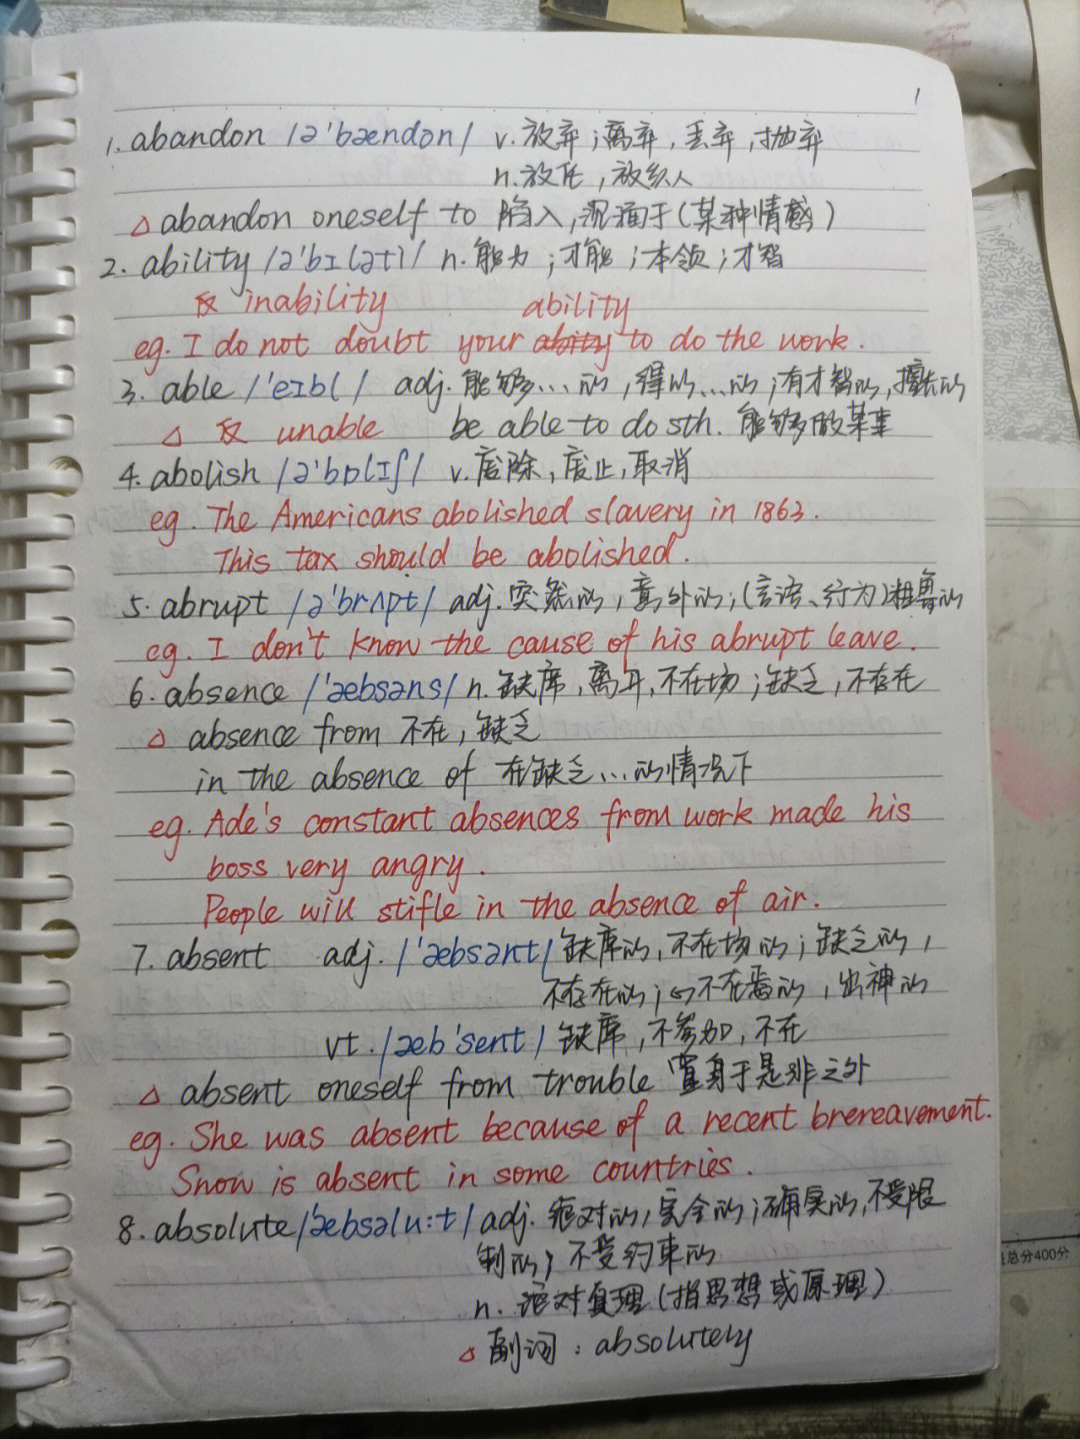 1
1. abandon /ə'bændən/ v. 放弃;离弃,丢弃,抛弃
n. 放任,放纵
△ abandon oneself to 陷入,沉湎于(某种情感)
2. ability /ə'bɪləti/ n. 能力;才能;本领;才智
反 inability ability
eg. I do not doubt your abity to do the work.
3. able /'eɪbl/ adj. 能够…的,得以…的;有才智的,擅长的
△ 反 unable be able to do sth. 能够做某事
4. abolish /ə'bɒlɪʃ/ v. 废除,废止,取消
eg. The Americans abolished slavery in 1863.
This tax should be abolished.
5. abrupt /ə'brʌpt/ adj. 突然的,意外的;(言语、行为)粗鲁的
eg. I don't know the cause of his abrupt leave.
6. absence /'æbsəns/ n. 缺席,离开,不在场;缺乏,不存在
△ absence from 不在,缺乏
in the absence of 在缺乏…的情况下
eg. Ade's constant absences from work made his
boss very angry.
People will stifle in the absence of air.
7. absent adj. /'æbsənt/ 缺席的,不在场的;缺乏的,
不存在的;心不在焉的,出神的
vt. /æb'sent/ 缺席,不参加,不在
△ absent oneself from trouble 置身于是非之外
eg. She was absent because of a recent brereavement.
Snow is absent in some countries.
8. absolute /'æbsəlu:t/ adj. 绝对的,完全的;确实的,不受限
制的;不受约束的
n. 绝对真理(指思想或原理)
△ 副词:absolutely
总分400分